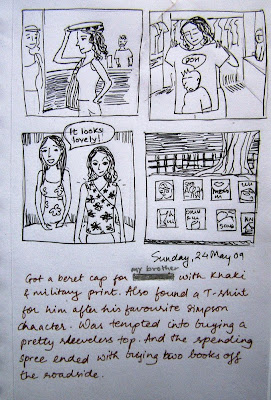 DOH
It looks
lovely!
Sunday, 24 May 09
my brother
Got a beret cap for with khaki
& military print. Also found a T-shirt
for him after his favourite Simpson
character. Was tempted into buying a
pretty sleeveless top. And the spending
spree ended with buying two books off
the roadside.